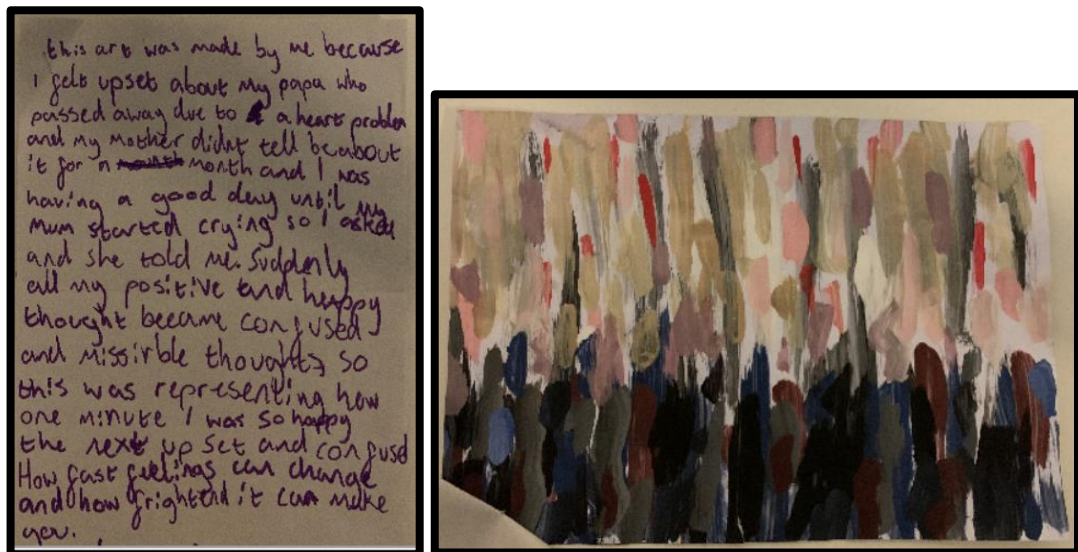 this art was made by me because
I felt upset about my papa who
passed away due to a heart problem
and my mother didnt tell be about
it for a month and I was
having a good day until my
mum started crying so I asked
and she told me. Suddenly
all my positive and happy
thought became confused
and missirble thoughts so
this was representing how
one minute I was so happy
the next up set and confused
How fast feelings can change
and how frightend it can make
you.